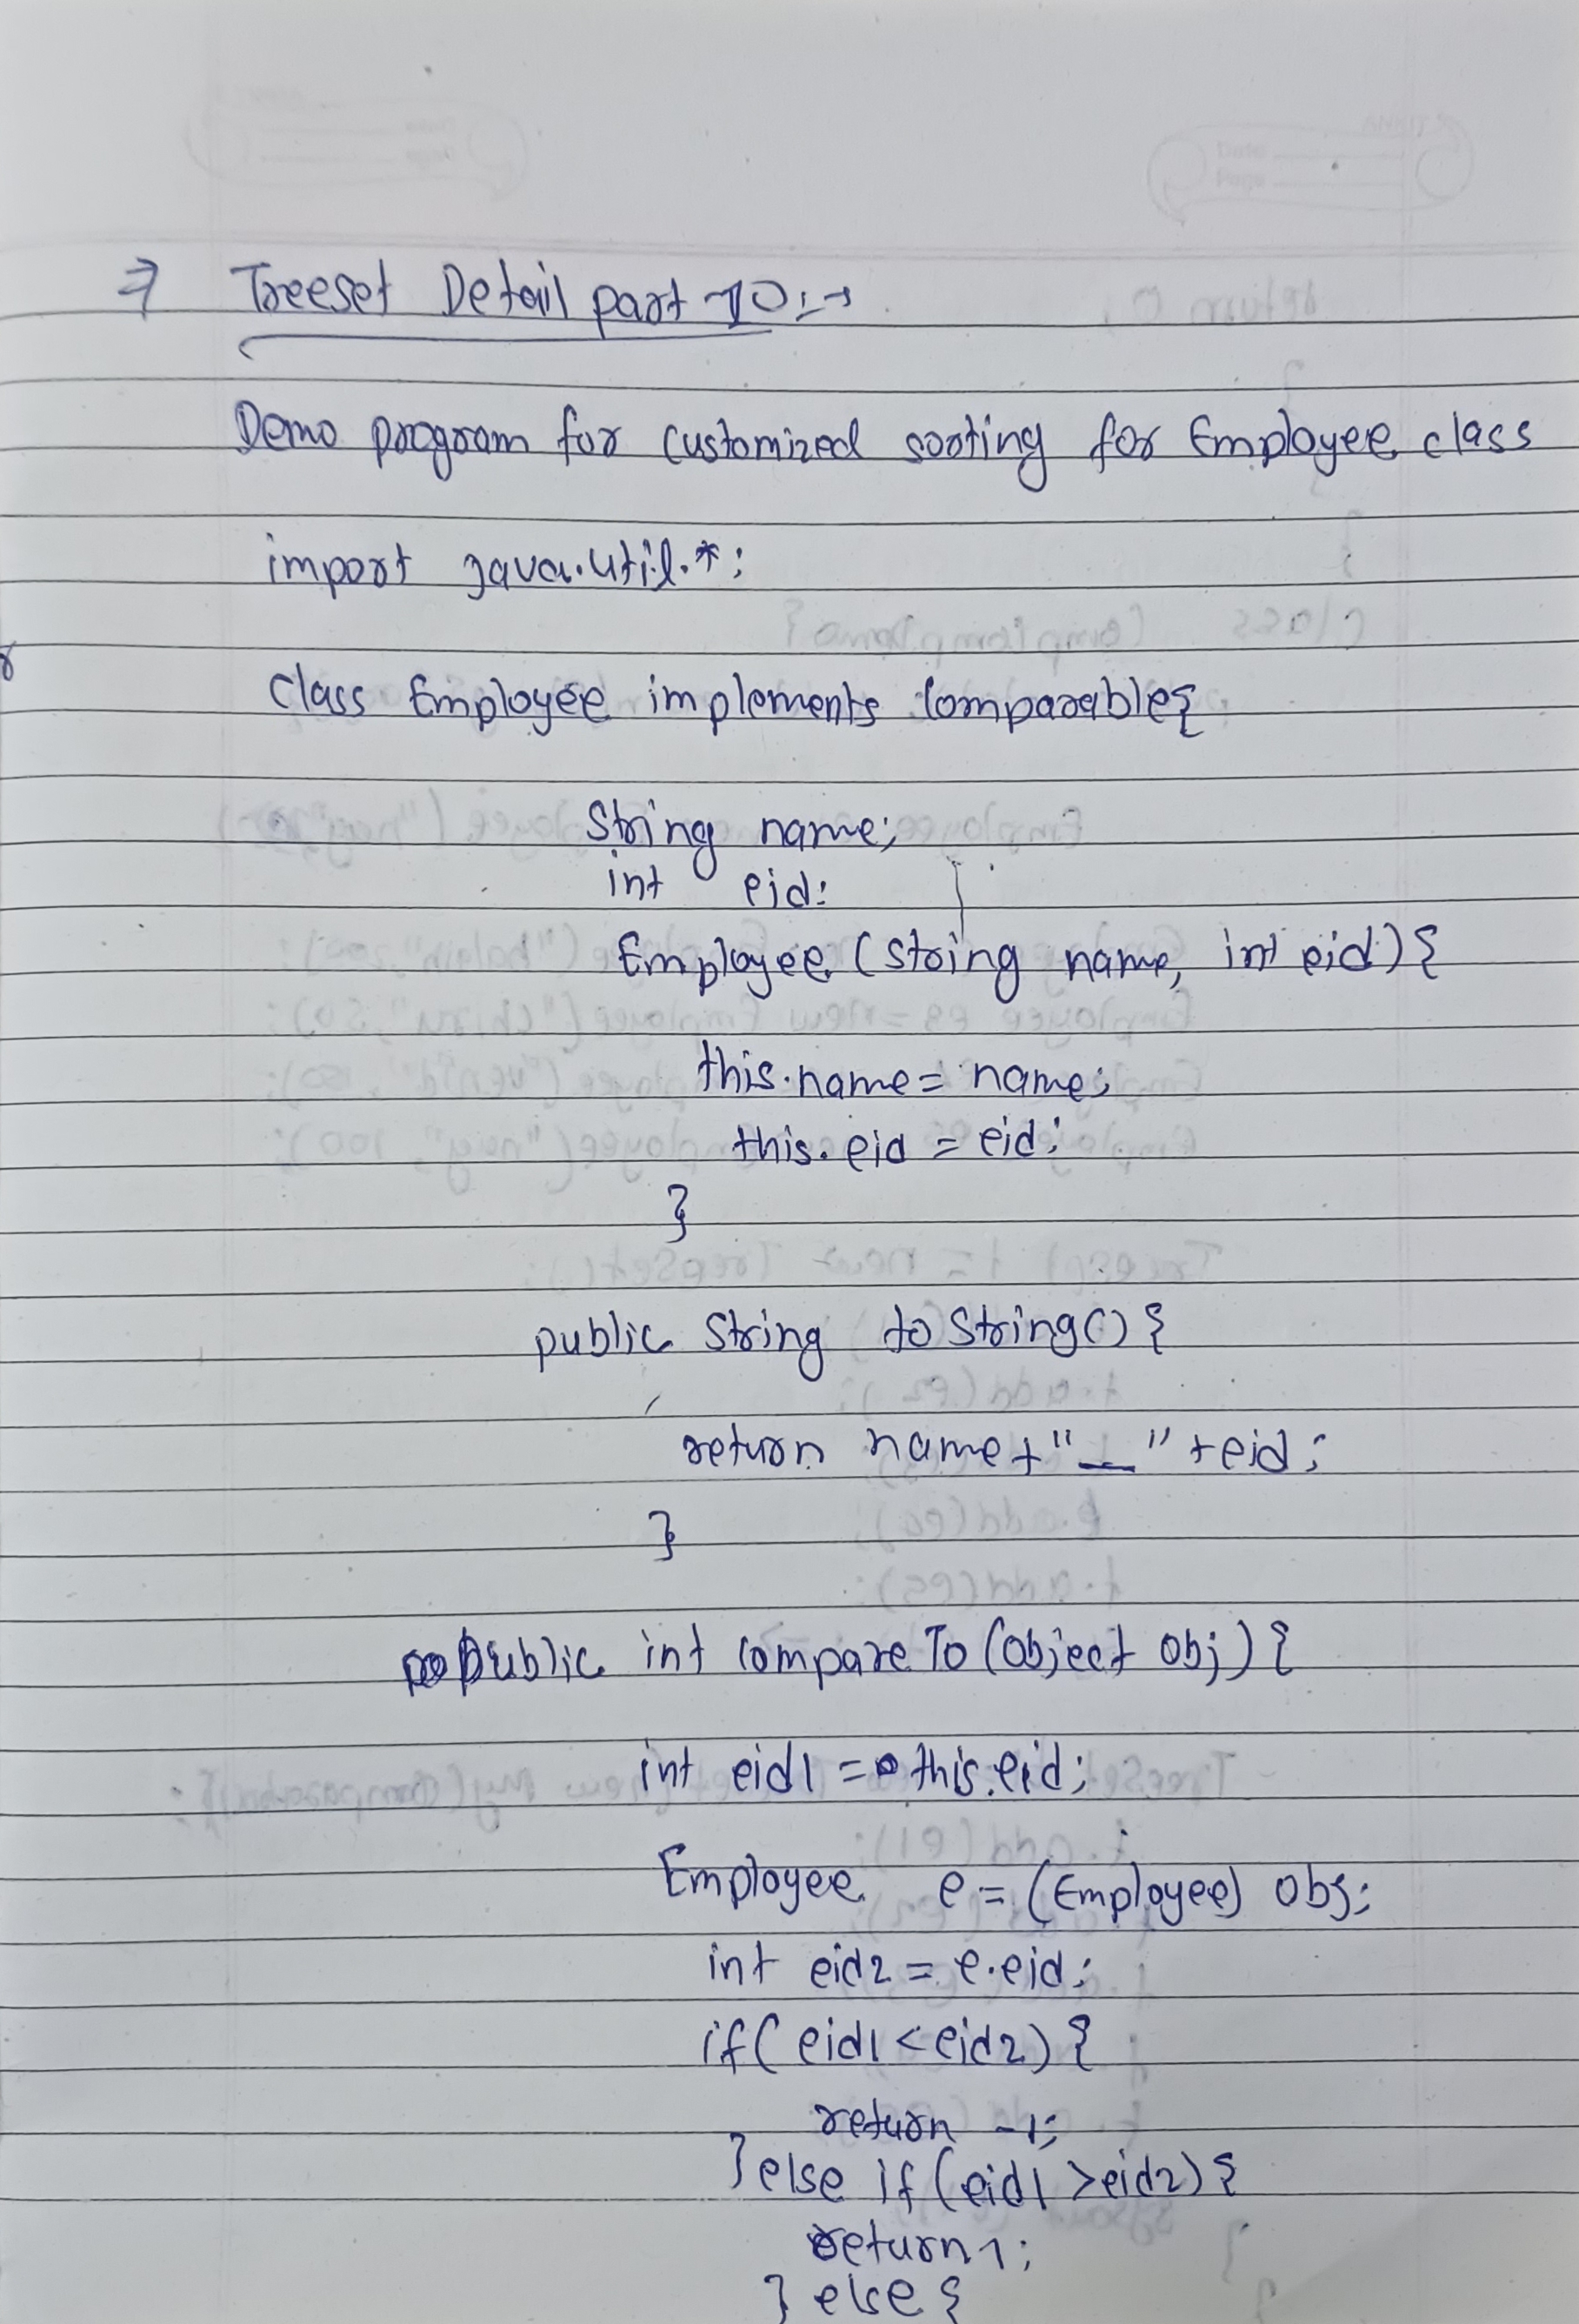 ⇒ Treeset Detail part -10:→
Demo program for customized sorting for Employee class
import java.util.*;
class Employee implements Comparable{
String name;
int eid;
Employee (String name, int eid) {
this.name = name;
this.eid = eid;
}
public String toString() {
return name+"__"+eid;
}
public int compareTo (Object obj) {
int eid1 = this.eid;
Employee e = (Employee) obj;
int eid2 = e.eid;
if( eid1 < eid2) {
return -1;
}else if (eid1 >eid2) {
return 1;
} else {